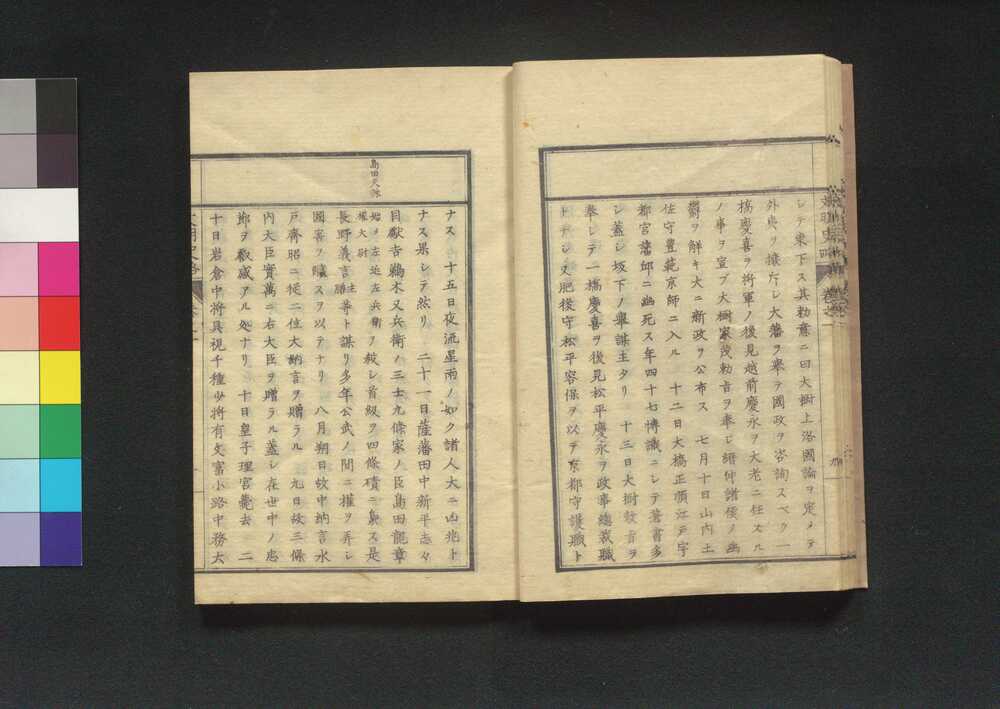 シテ東下ス其勅意ニ曰大樹上洛國論ヲ定メテ
外夷ヲ攘斥シ大藩ヲ擧テ國政ヲ咨詢スベク一
橋慶喜ヲ将軍ノ後見越前慶永ヲ大老ニ任スル
ノ事ヲ宣フ大樹家茂勅旨ヲ奉シ縉紳諸侯ノ幽
欝ヲ解キ大ニ新政ヲ公布ス 七月十日山内土
佐守豊範京師ニ入ル 十二日大橋正順江戸宇
都宮藩邸ニ幽死ス年四十七博識ニシテ著書多
シ蓋シ坂下ノ擧謀主タリ 十三日大樹敕旨ヲ
奉シテ一橋慶喜ヲ後見松平慶永ヲ政事總裁職
トナシ又肥後守松平容保ヲ以テ京都守護職ト
ナス 十五日夜流星雨ノ如ク諸人大ニ凶兆ト
ナス果シテ然リ 二十一日薩藩田中新平志々
目獻吉鵜木又兵衛ノ三士九條家ノ臣島田龍章
始メ左近左兵衛
權大尉
ヲ殺シ首級ヲ四條磧ニ梟ス是
長野義言
主膳
等ト謀リ多年公武ノ間ニ權ヲ弄シ
國害ヲ醸スヲ以テナリ 八月朔日故中納言水
戸齊昭ニ從二位大納言ヲ贈ラル 九日故三條
内大臣實萬ニ右大臣ヲ贈ラル蓋シ在世中ノ忠
節ヲ叡感アル処ナリ 十日皇子理宮薨去 二
十日岩倉中将具視千種少将有文富小路中務大
島田天誅